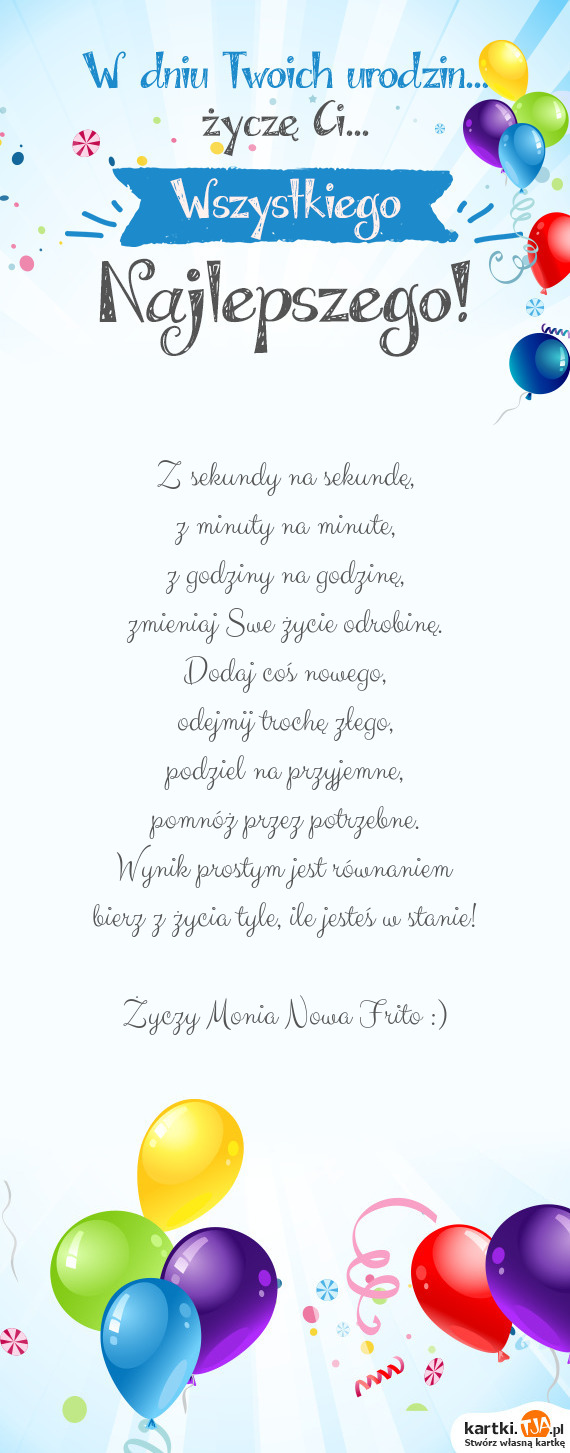 W dniu Twoich urodzin...
życzę Ci...
Wszystkiego
Najlepszego!
Z sekundy na sekundę,
z minuty na minute,
z godziny na godzinę,
zmieniaj Swe życie odrobinę.
Dodaj coś nowego,
odejmij trochę złego,
podziel na przyjemne,
pomnóż przez potrzebne.
Wynik prostym jest równaniem
bierz z życia tyle, ile jesteś w stanie!
Życzy Monia Nowa Frito :)
kartki.TJA.pl
Stwórz własną kartkę